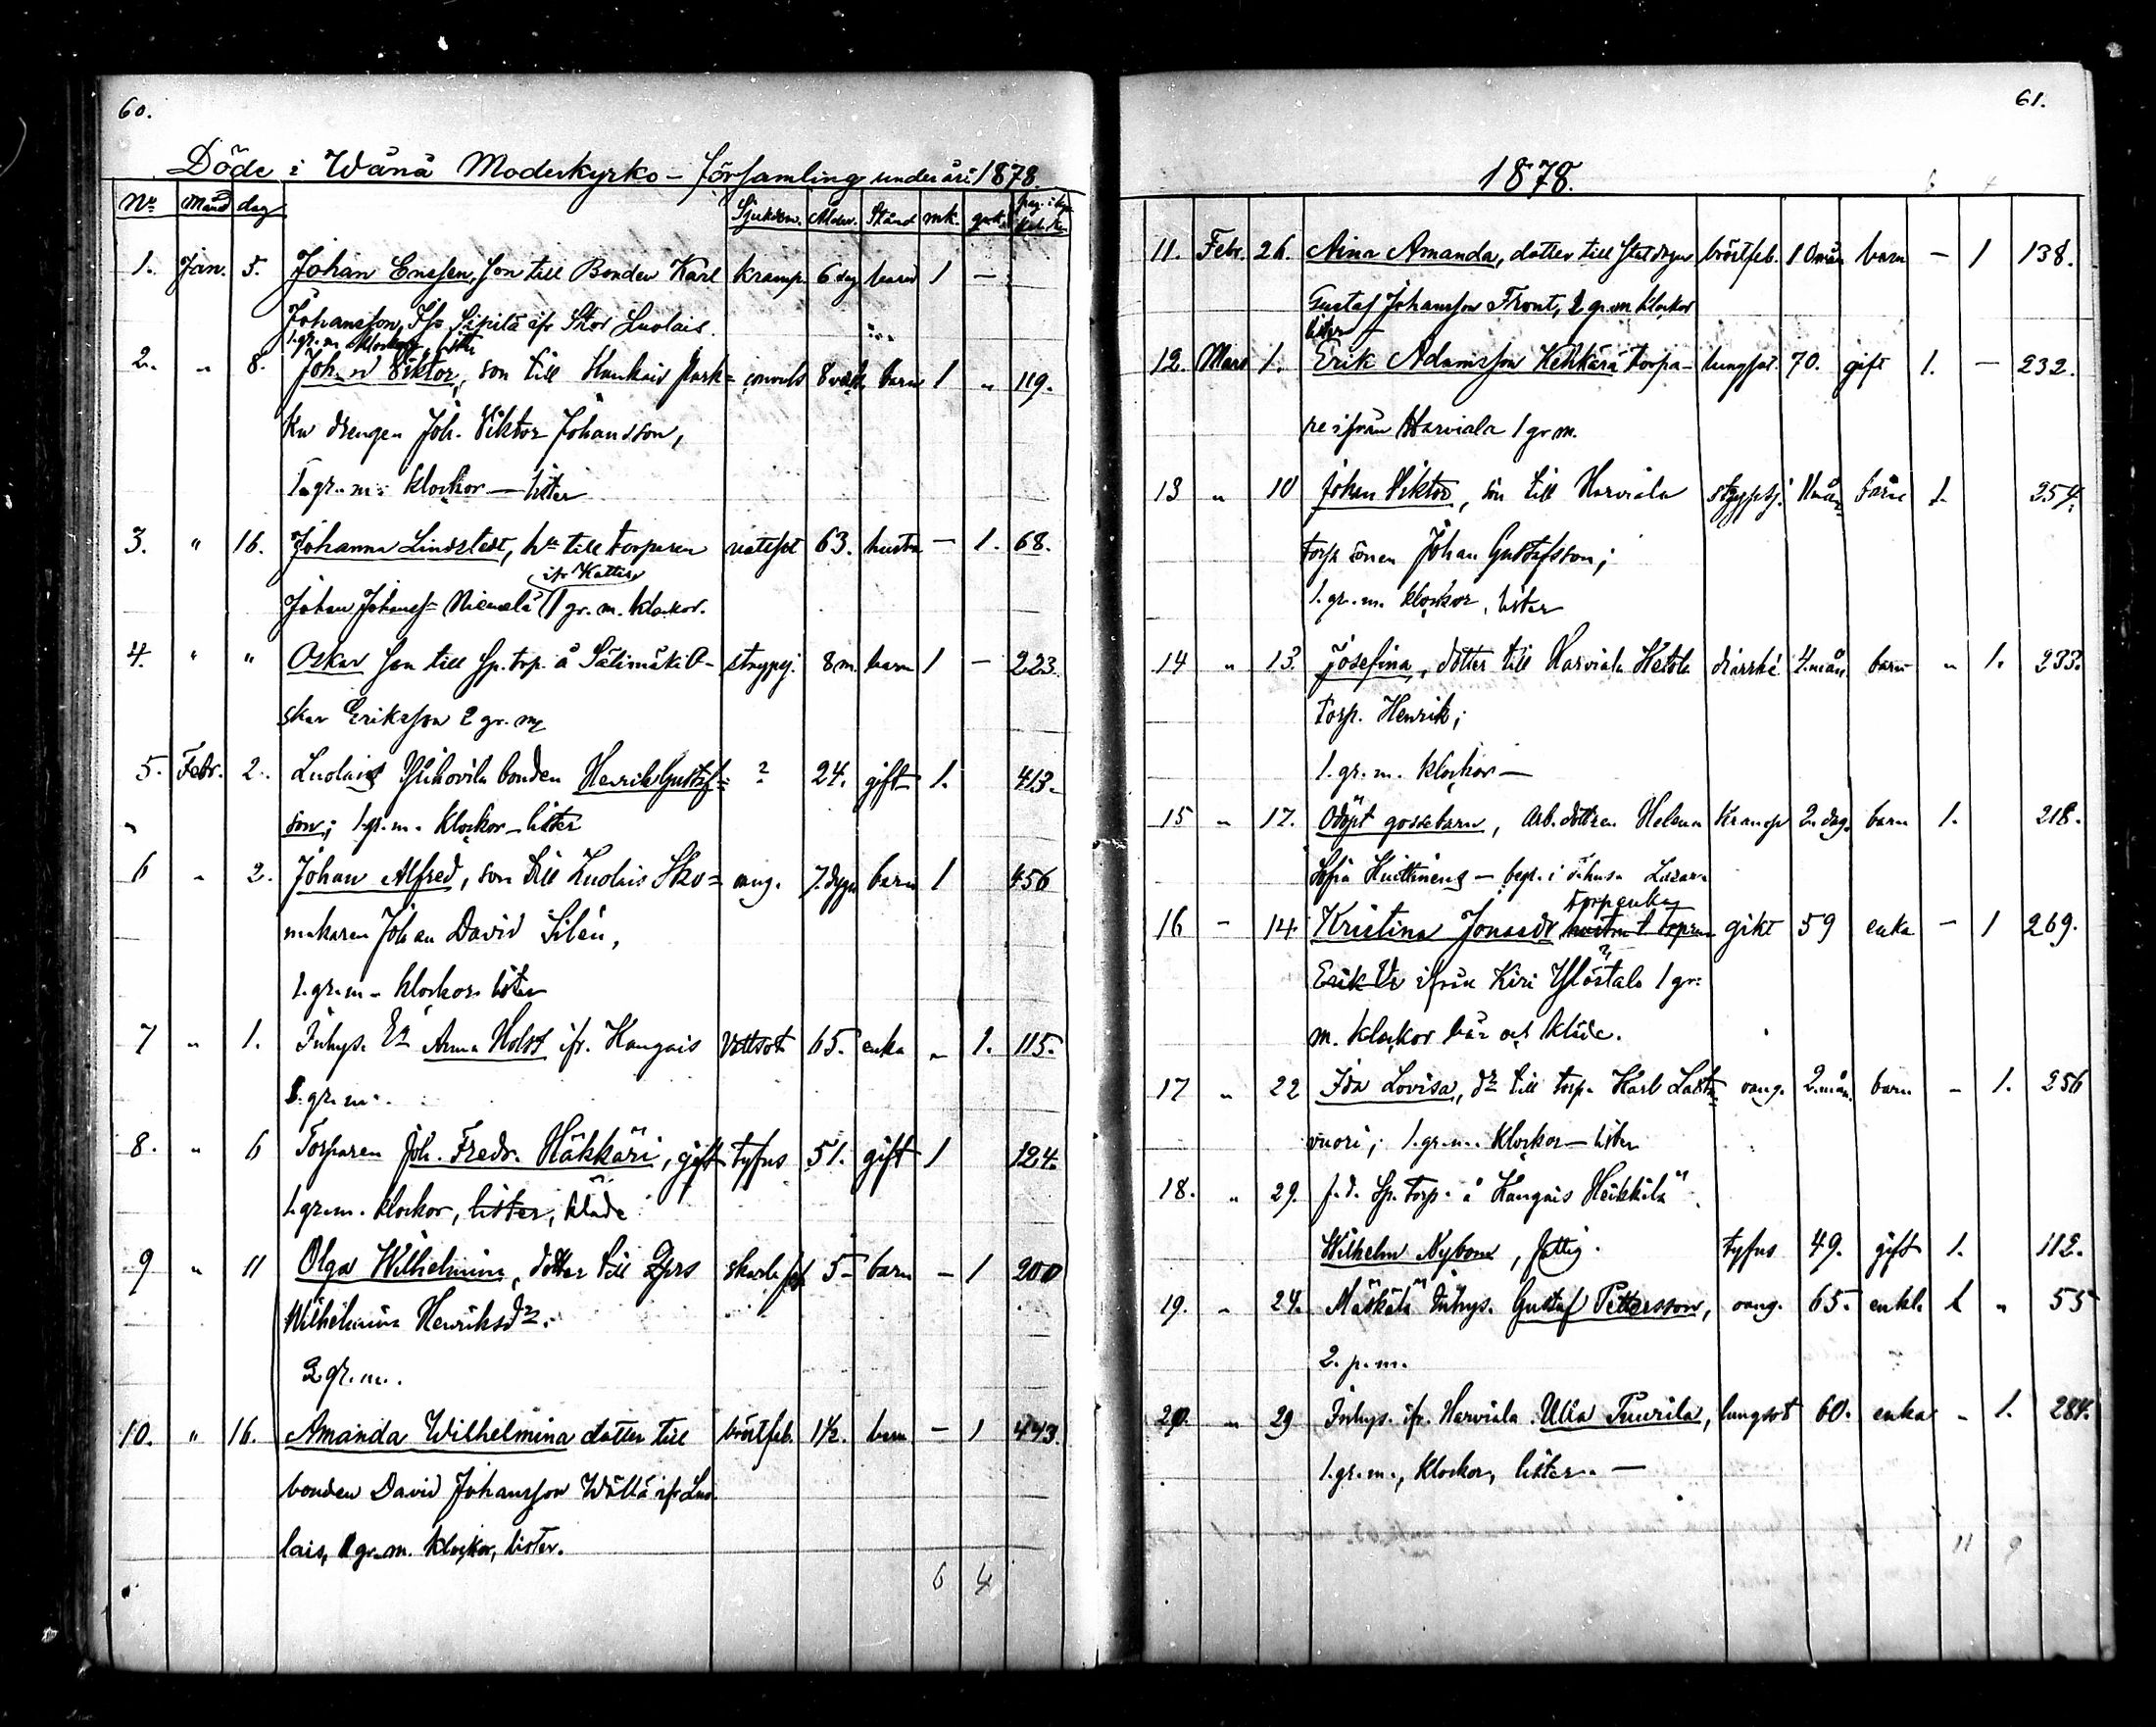 60.
Döde i Wånå Moderkyrko-församling under år 1878.
No Månd dag Sjukdom. Ålder. Stånd mk. qvk.
1. Jan. 5. Johan Enssen, son till Bonden Karl kramp. 6 dag barn 1 —
Johansson, Sipilä ifr Stor Luolais.
1. gr. m klockor, lister
2. " 8. Johan Viktor, son till Hankais Park= convuls 8 veck barn 1 " 119.
ku drengen Joh. Viktor Johansson,
1. gr. m. klockor — lister
3. " 16. Johanna Lindstedt, hu till torparen vattsot 63. hustru — 1. 68.
ifr Kattis
Johan Johanss= Niemelä 1 gr. m. klockor.
4. " " Oskar son till sp. torp. å Sälimäki O- strypsj. 8 m. barn 1 — 223.
skar Eriksson 2 gr. m
5. Febr. 2. Luolais Yrkövilä bonden Henrik Gustaf= ? 24. gift 1. 413.
" son; 1. gr. m. klockor — lister
6 " 2. Johan Alfred, son till Luolais Sko= oang. 7. dygn barn 1 456
makaren Johan David Silén,
1. gr. m — klockor lister
7 " 1. Inhys. En Anna Holst ifr. Kangais Vattsot 65. enka " 1. 115.
1. gr. m.
8. " 6 Torparen Joh. Fredr. Häkkäri, gift tyfus 51. gift 1 124.
1. gr. m. klockor, lister, kläde
9 " 11 Olga Wilhelmina, dotter till Pgrs skarlf 5 — barn — 1 200
Wilhelmina Henriksdr.
2 gr. m.
10. " 16. Amanda Wilhelmina dotter till bröstfeb. 1½. barn — 1 443.
bonden David Johansson Wällä ifr Luo-
lais, 1 gr. m. klockor, lister.
6 4
61.
1878.
11. Febr. 26. Aina Amanda, dotter till Statdrgen bröstfeb. 10 mån barn — 1 138.
Gustaf Johansson Front, 2 gr. m klockor
lister —
12. Mars 1. Erik Adamsson Kehkärä torpa- lungsot. 70. gift 1. — 232.
re ifrån Harviala 1 gr m.
13 " 10 Johan Viktor, son till Harviala strypsj. 11 mån barn 1. 254.
torp. sonen Johan Gustafsson;
1. gr. m. klockor, lister
14 " 13. Josefina, dotter till Harviala Ketola diarrhé 4. mån. barn " 1. 233.
torp. Henrik;
1. gr. m. klockor —
15 " 17. Odöpt gossebarn, Arb. dottren Helena Kramp 2. dag. barn 1. 218.
Sofia Huittinens — begr. i T:hus Lazar.
torpenka
16 — 14. Kristina Jonasdr hustru t torparen gikt 59 enka — 1 269.
Erik ifrån Kiri Ylöstalo 1 gr.
m. klockor bår och kläde.
17 " 22 Ida Lovisa, dr till torp. Karl Lautia= oang. 2. mån. barn — 1. 256
vuori; 1. gr. m. klockor — lister
18. " 29. f. d. Sp. torp. å Kangais Heikkilä
Wilhelm Nybom, fattig. tyfus 49. gift 1. 112.
19. " 24. Mäskälä Inhys. Gustaf Pettersson, oang. 65. enkl. 1 " 55
2. p. m.
20. " 29 Inhys. ifr. Harviala Ulla Tuurila, lungsot 60. enka " 1. 284.
1. gr. m., klockor, lister. —
11 9